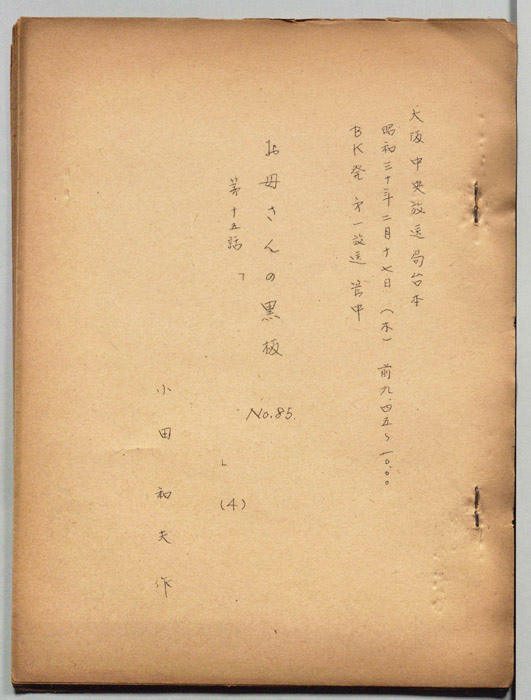 大阪中央放送局台本
昭和三十年二月十七日(木)前九.四五〜一〇.〇〇
BK発 第一放送 管中
お母さんの黒板
No.85.
第十五話「 」(4)
小田和夫作